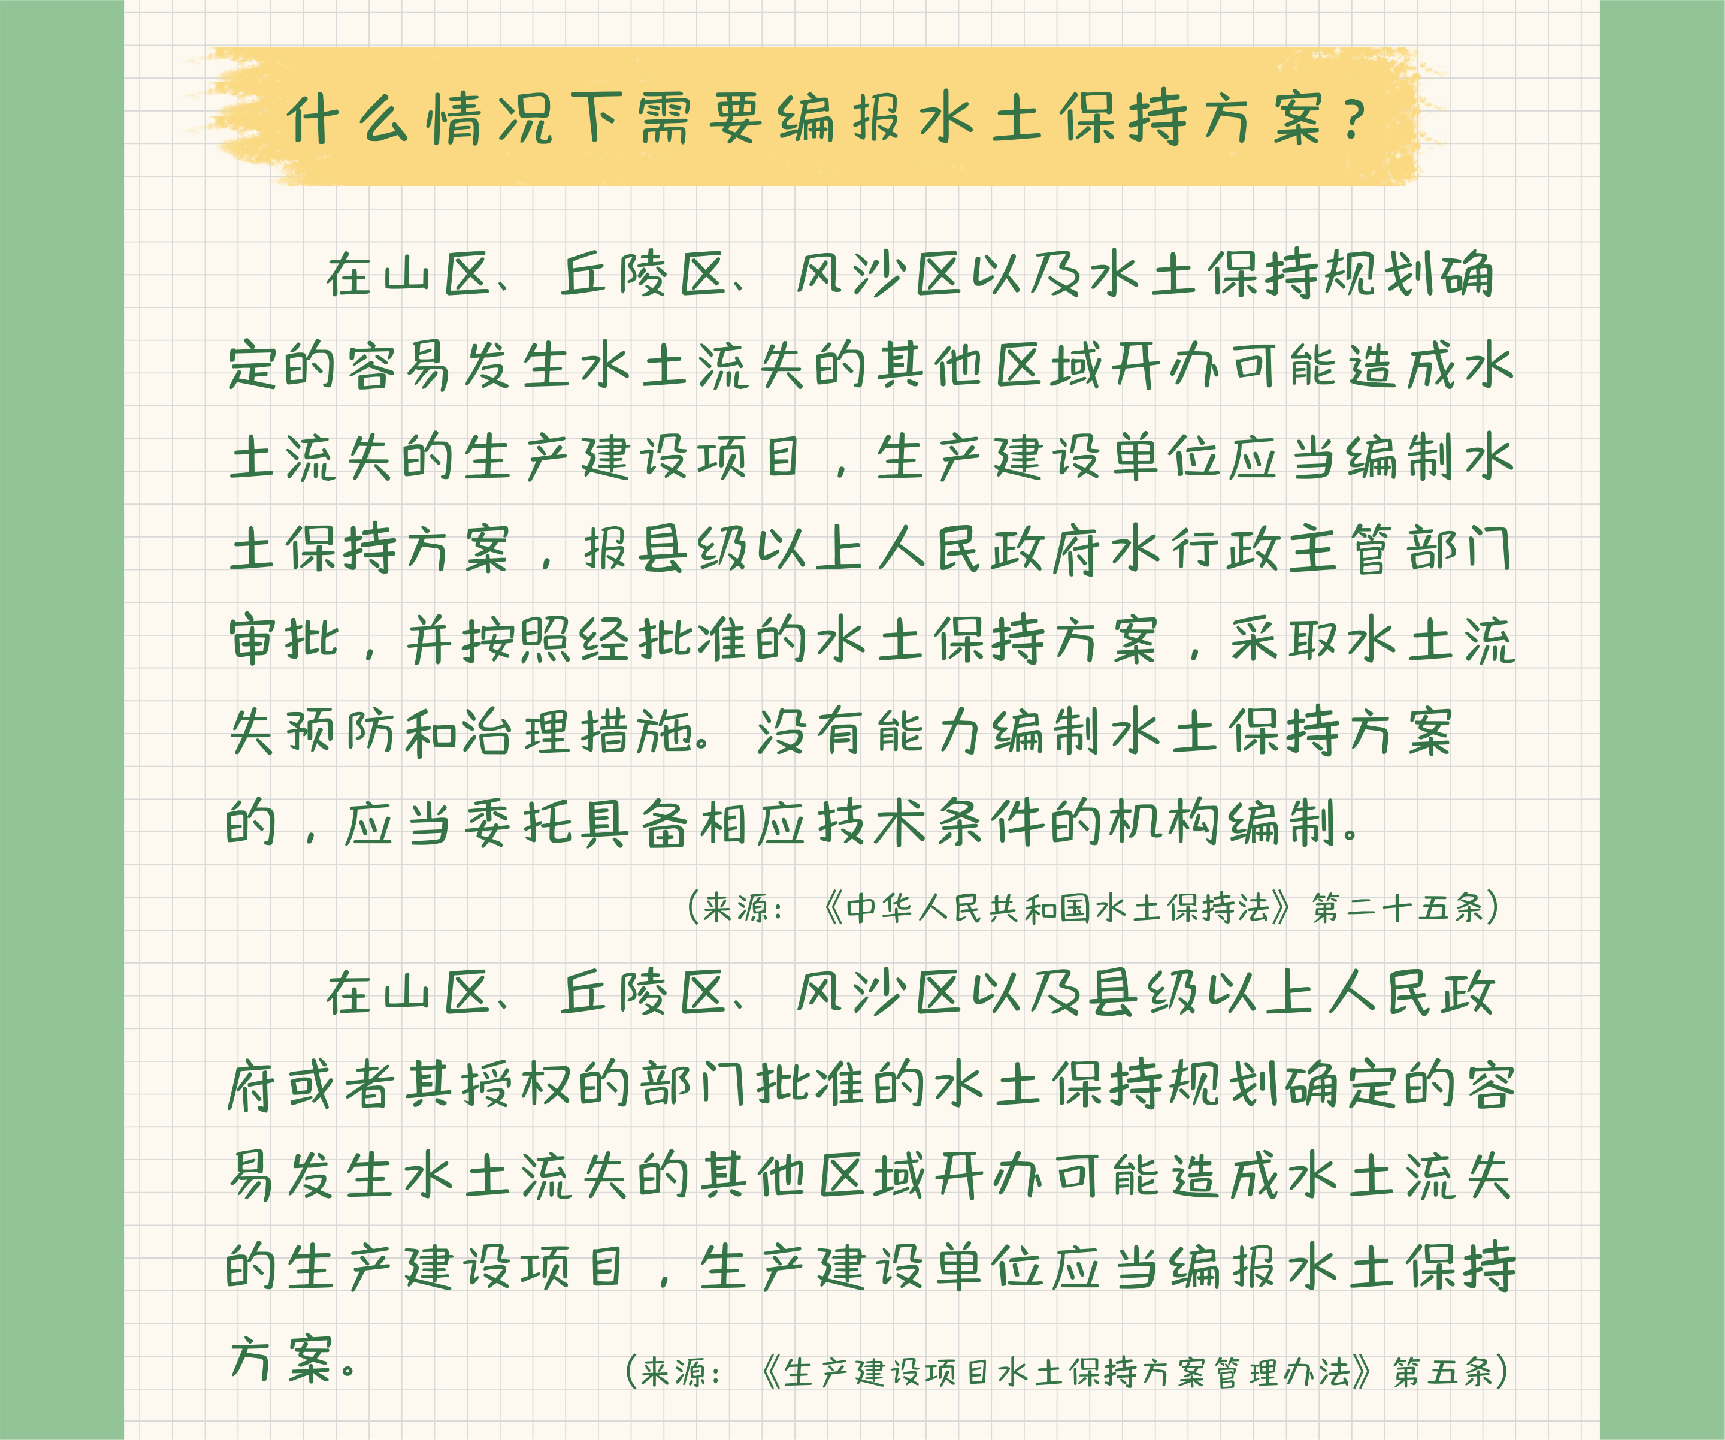 什么情况下需要编报水土保持方案?
在山区、丘陵区、风沙区以及水土保持规划确
定的容易发生水土流失的其他区域开办可能造成水
土流失的生产建设项目，生产建设单位应当编制水
土保持方案，报县级以上人民政府水行政主管部门
审批，并按照经批准的水土保持方案，采取水土流
失预防和治理措施。没有能力编制水土保持方案
的，应当委托具备相应技术条件的机构编制。
(来源：《中华人民共和国水土保持法》第二十五条)
在山区、丘陵区、风沙区以及县级以上人民政
府或者其授权的部门批准的水土保持规划确定的容
易发生水土流失的其他区域开办可能造成水土流失
的生产建设项目，生产建设单位应当编报水土保持
方案。
(来源：《生产建设项目水土保持方案管理办法》第五条)